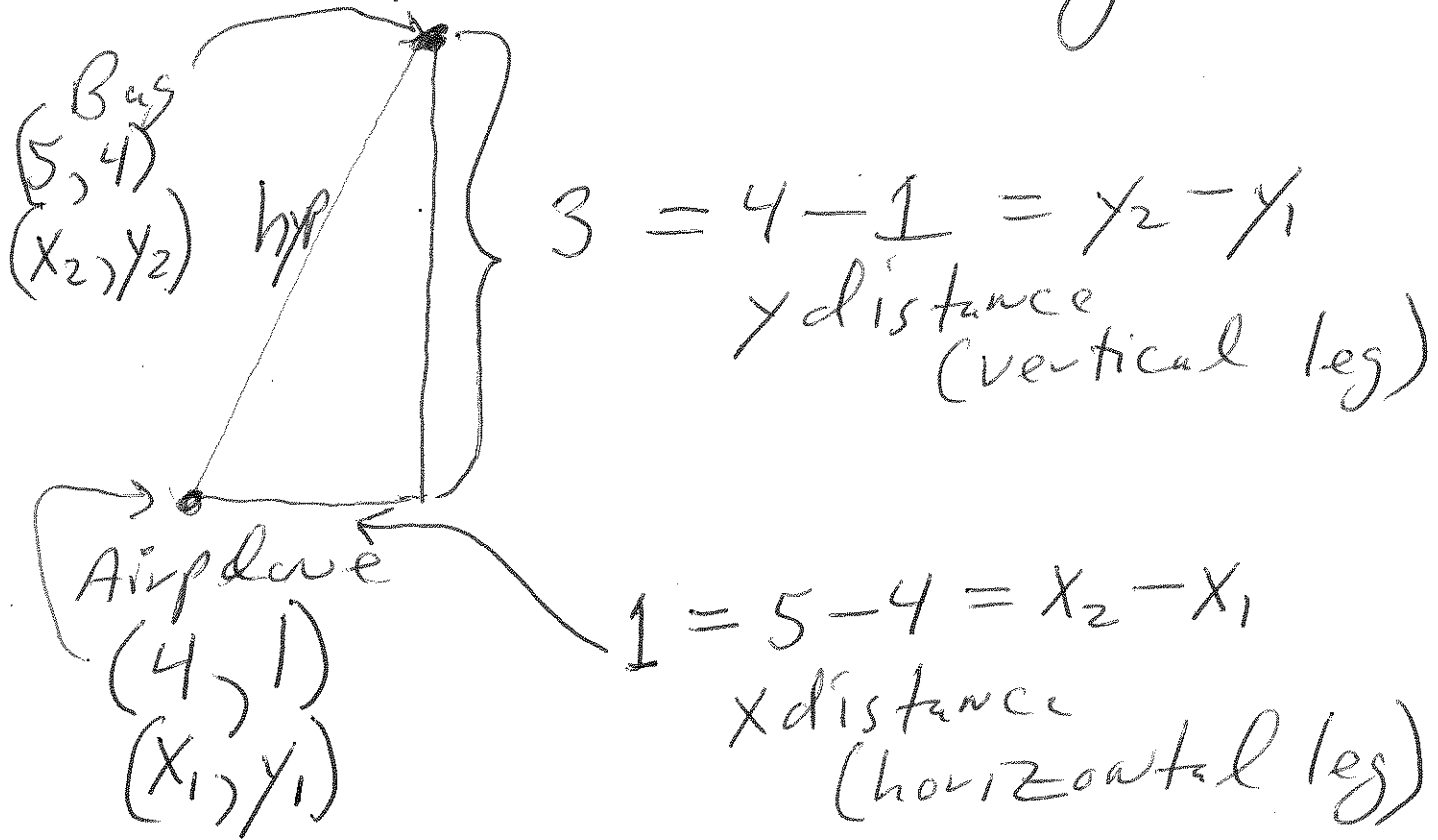 Bug
(5, 4)
(x₂, y₂)
hyp
3 = 4 - 1 = y₂ - y₁
y distance
(vertical leg)
Airplane
(4, 1)
(x₁, y₁)
1 = 5 - 4 = x₂ - x₁
x distance
(horizontal leg)